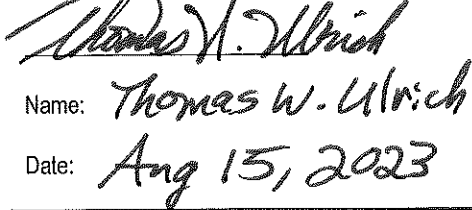 Thomas W. Ulrich
Name: Thomas W. Ulrich
Date: Aug 15, 2023